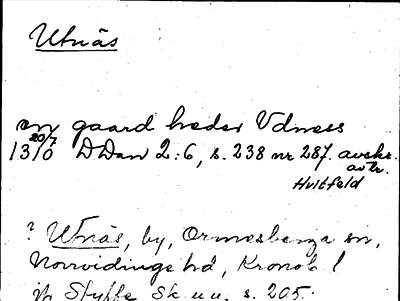 Utnäs
en gaard heder Vdness
20/7
1310 DDan 2:6, s. 238 nr 287. avskr.
av tr.
Hvitfeld
? Utnäs, by, Ormesberga sn,
Norrvidinge hd, Kronob. l
jfr Styffe Sk u u, s. 205.